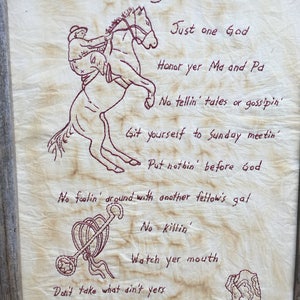 Just one God
Honor yer Ma and Pa
No tellin' tales or gossipin'
Git yourself to Sunday meetin'
Put nothin' before God
No foolin' around with another fellow's gal
No killin'
Watch yer mouth
Don't take what ain't yers